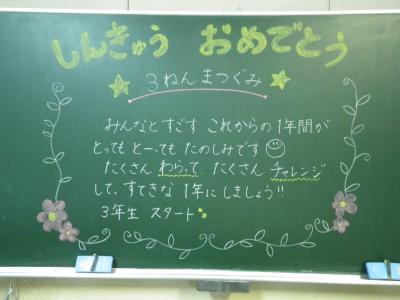 しんきゅう おめでとう
3ねんまつぐみ
みんなとすごす これからの1年間が
とっても とーっても たのしみです
たくさん わらって たくさん チャレンジ
して、すてきな 1年に しましょう!!
3年生 スタート